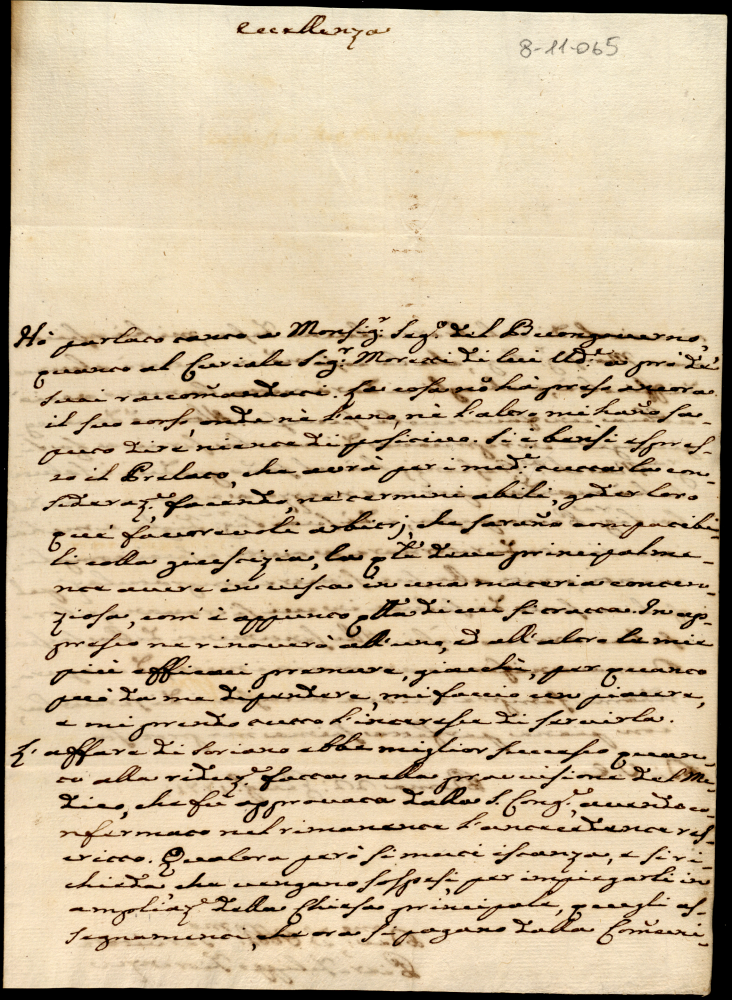 Eccellenza
8-11-065
Hò parlato tanto a Monsig.r Seg.o del Buongoverno,
quanto al Curiale Sig.r Moretti di lei Ud.e a prò de'
suoi raccom̃andati. La cosa nõ hà preso ancora
il suo corso, onde nè l'uno, nè l'altro mi hañо sa-
puto dire niente di positivo. Si è bensì espres-
so il Prelato, che avrà per i med.i tutta la con-
sideraz.e, facendo, ne' termini abili, goder loro
que' favorevoli arbitrj, che sarañо compatibi-
li colla giustizia, la q.le deve principalme-
nte avere in vista in una materia conten-
ziosa, com'è appunto q̃lla di cui si tratta. In ap-
presso ne rinoverò all'uno, ed all'altro le mie
più efficaci premure, giacchè, per quanto
può da me dipendere, mi faccio un piacere,
e mi prendo tutto l'interesse di servirla.
L'affare di Soriano ebbe miglior successo quan-
to alla riduz.e fatta nella provvisione del Me-
dico, che fù approvata dalla S. Cong.e, avendo co-
nfermato nel rimanente l'antecedente res-
critto. Qualora però si muti istanza, e si ri-
chieda che vengano sospesi per impiegarli in
ampliaz.e della Chiesa principale, quegli as-
segnamenti, che ora si pagano dalla Com̃uni-